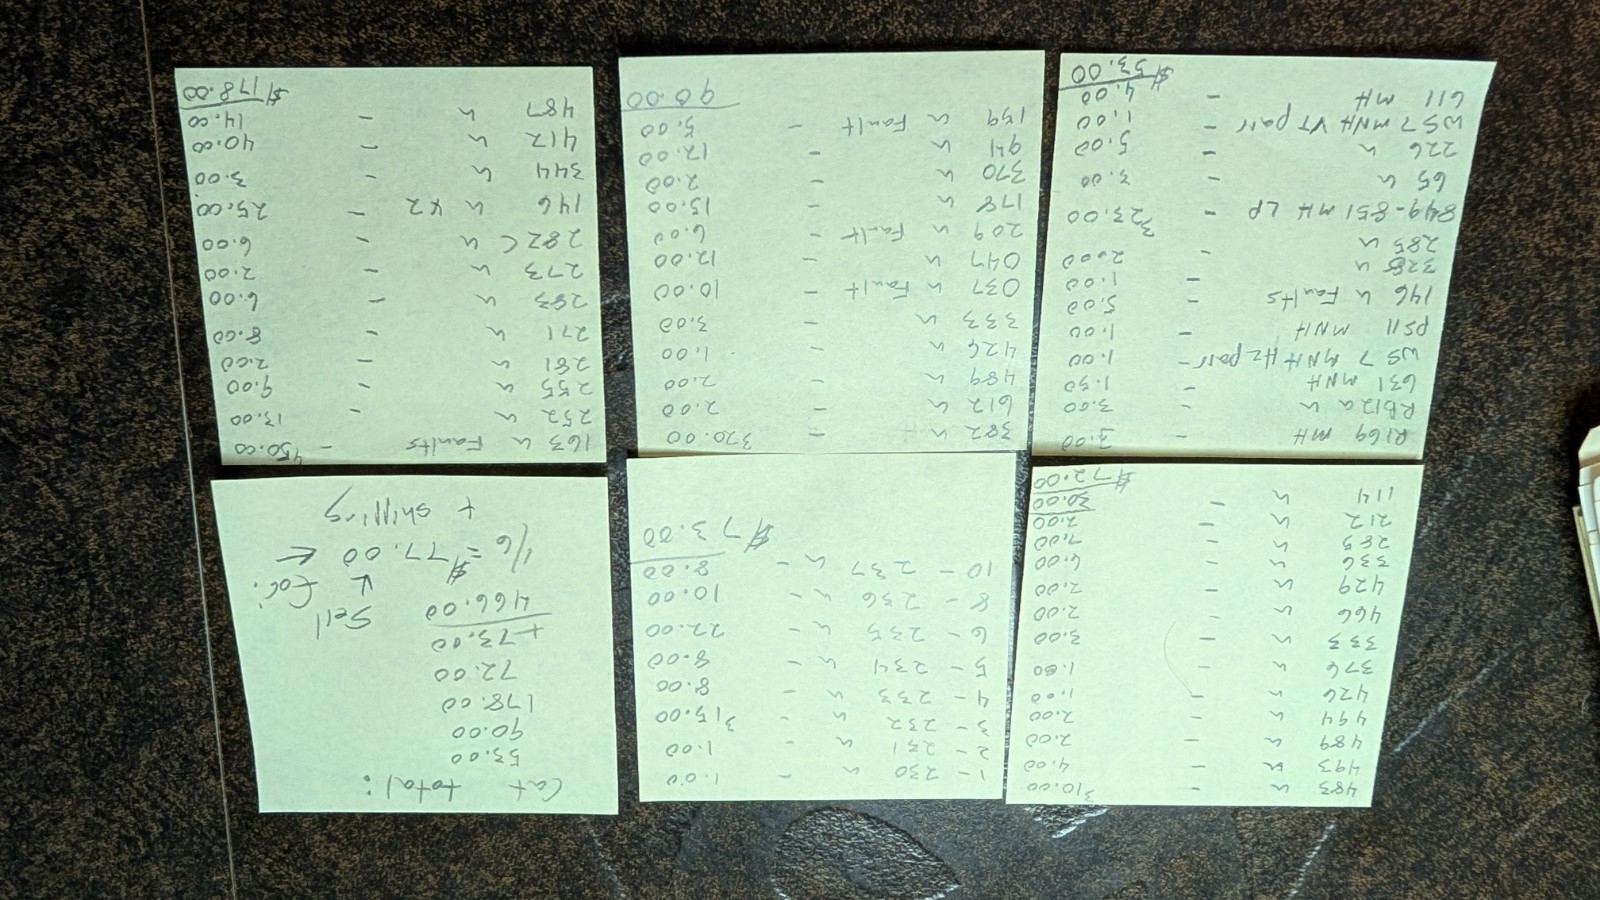 483 u - $10.00
493 u - 4.00
489 u - 2.00
494 u - 2.00
426 u - 1.00
376 u - 1.00
333 u - 3.00
466 u - 2.00
429 u - 2.00
336 u - 6.00
285 u - 7.00
212 u - 2.00
114 u - 30.00
$72.00
1 - 230 u - 1.00
2 - 231 u - 1.00
3 - 232 u - $15.00
4 - 233 u - 8.00
5 - 234 u - 8.00
6 - 235 u - 22.00
8 - 236 u - 10.00
10 - 237 u - 8.00
$73.00
Cat total:
53.00
90.00
178.00
72.00
+ 73.00
466.00
Sell for:
1/6 = $77.00 ←
+ shipping
R169 MH - 3.00
RB12a u - 3.00
631 MNH - 1.50
WS 7 MNH Hz pair - 1.00
PS11 MNH - 1.00
146 u Faults - 5.00
328 u - 1.00
285 u - 2.00
849-851 MH LP - $23.00
65 u - 3.00
226 u - 5.00
WS 7 MNH VT pair - 1.00
611 MH - 4.00
$53.00
382 u - $20.00
612 u - 2.00
489 u - 2.00
426 u - 1.00
333 u - 3.00
037 u Fault - 10.00
047 u - 12.00
209 u Fault - 6.00
178 u - 15.00
370 u - 2.00
941 u - 12.00
159 u Fault - 5.00
90.00
163 u Faults - $50.00
252 u - 13.00
255 u - 9.00
281 u - 2.00
271 u - 8.00
283 u - 6.00
273 u - 2.00
282c u - 6.00
146 u x2 - 25.00
344 u - 3.00
412 u - 40.00
487 u - 14.00
$178.00